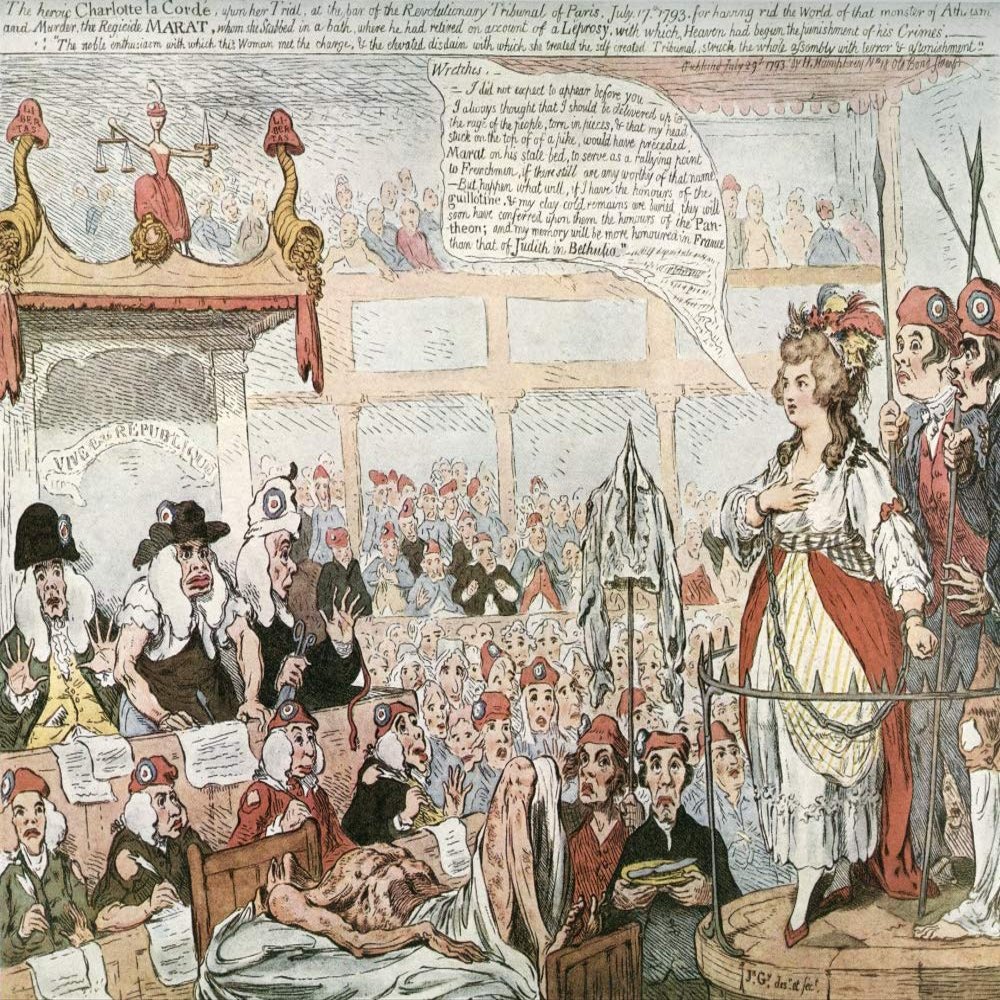 The heroic Charlotte la Cordé, upon her Trial, at the bar of the Revolutionary Tribunal of Paris, July 17th 1793, for having rid the World of that monster of Atheism
and Murder, the Regicide MARAT, whom she Stabbed in a bath, where he had retired on account of a Leprosy, with which, Heaven had begun the punishment of his Crimes.
"The noble enthusiasm with which this Woman met the charge, & the elevated disdain with which she treated the self created Tribunal, struck the whole assembly with terror & astonishment."
Publish'd July 29th 1793 by H. Humphrey No 18 Old Bond Street
Wretches,
— I did not expect to appear before you
I always thought that I should be delivered up to
the rage of the people, torn in pieces, & that my head
stuck on the top of of a pike, would have preceded
Marat on his state bed, to serve as a rallying point
to Frenchmen, if there still are any worthy of that name
—But happen what will, if I have the honours of the
guillotine, & my clay cold remains are buried, they will
soon have conferred upon them the honours of the Pan-
theon; and my memory will be more honoured in France
than that of Judith in Bethulia."
LI
BER
TAS
LI
BER
TAS
VIVE la REPUBLIQUE
Js Gy des: et fect